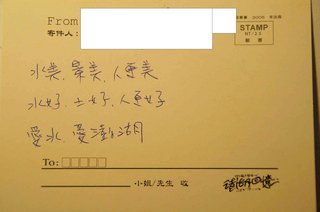 From
寄件人：
2005
STAMP
NT/2.5
郵票
水美、景美、人更美
水好、土好、人更好
愛水、愛澎湖
To:
小姐/先生 收